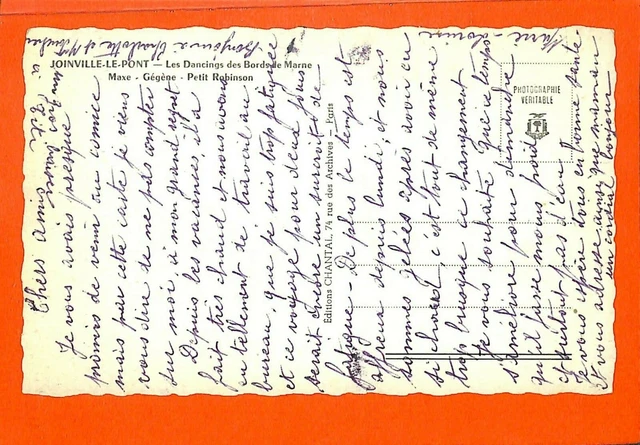 JOINVILLE-LE-PONT — Les Dancings des Bords de Marne
Maxe - Gégène - Petit Robinson
PHOTOGRAPHIE
VÉRITABLE
Éditions CHANTAL, 74 rue des Archives - Paris
Chers amis
Je vous avais presque
promis de venir au
mais par cette carte je viens
vous dire de ne pas compter
sur moi, à mon grand regret
Depuis les vacances, il a
fait très chaud et nous avons
eu tellement de travail au
bureau, que je suis trop fatiguée
et ce voyage pour deux jours
serait encore un surcroît de
fatigue - De plus le temps est
affreux depuis lundi, et nous
sommes gelées après avoir eu
si chaud, c'est tout de même
trop brusque ce changement
Je vous souhaite que ce temps
s'améliore pour dimanche
qu'il fasse moins froid
et surtout pas d'eau
Je vous espère tous en bonne santé
et vous adresse ainsi que maman
un cordial bonjour
Marie-Louise
Bonjour à Charlotte et
un gros baiser
à